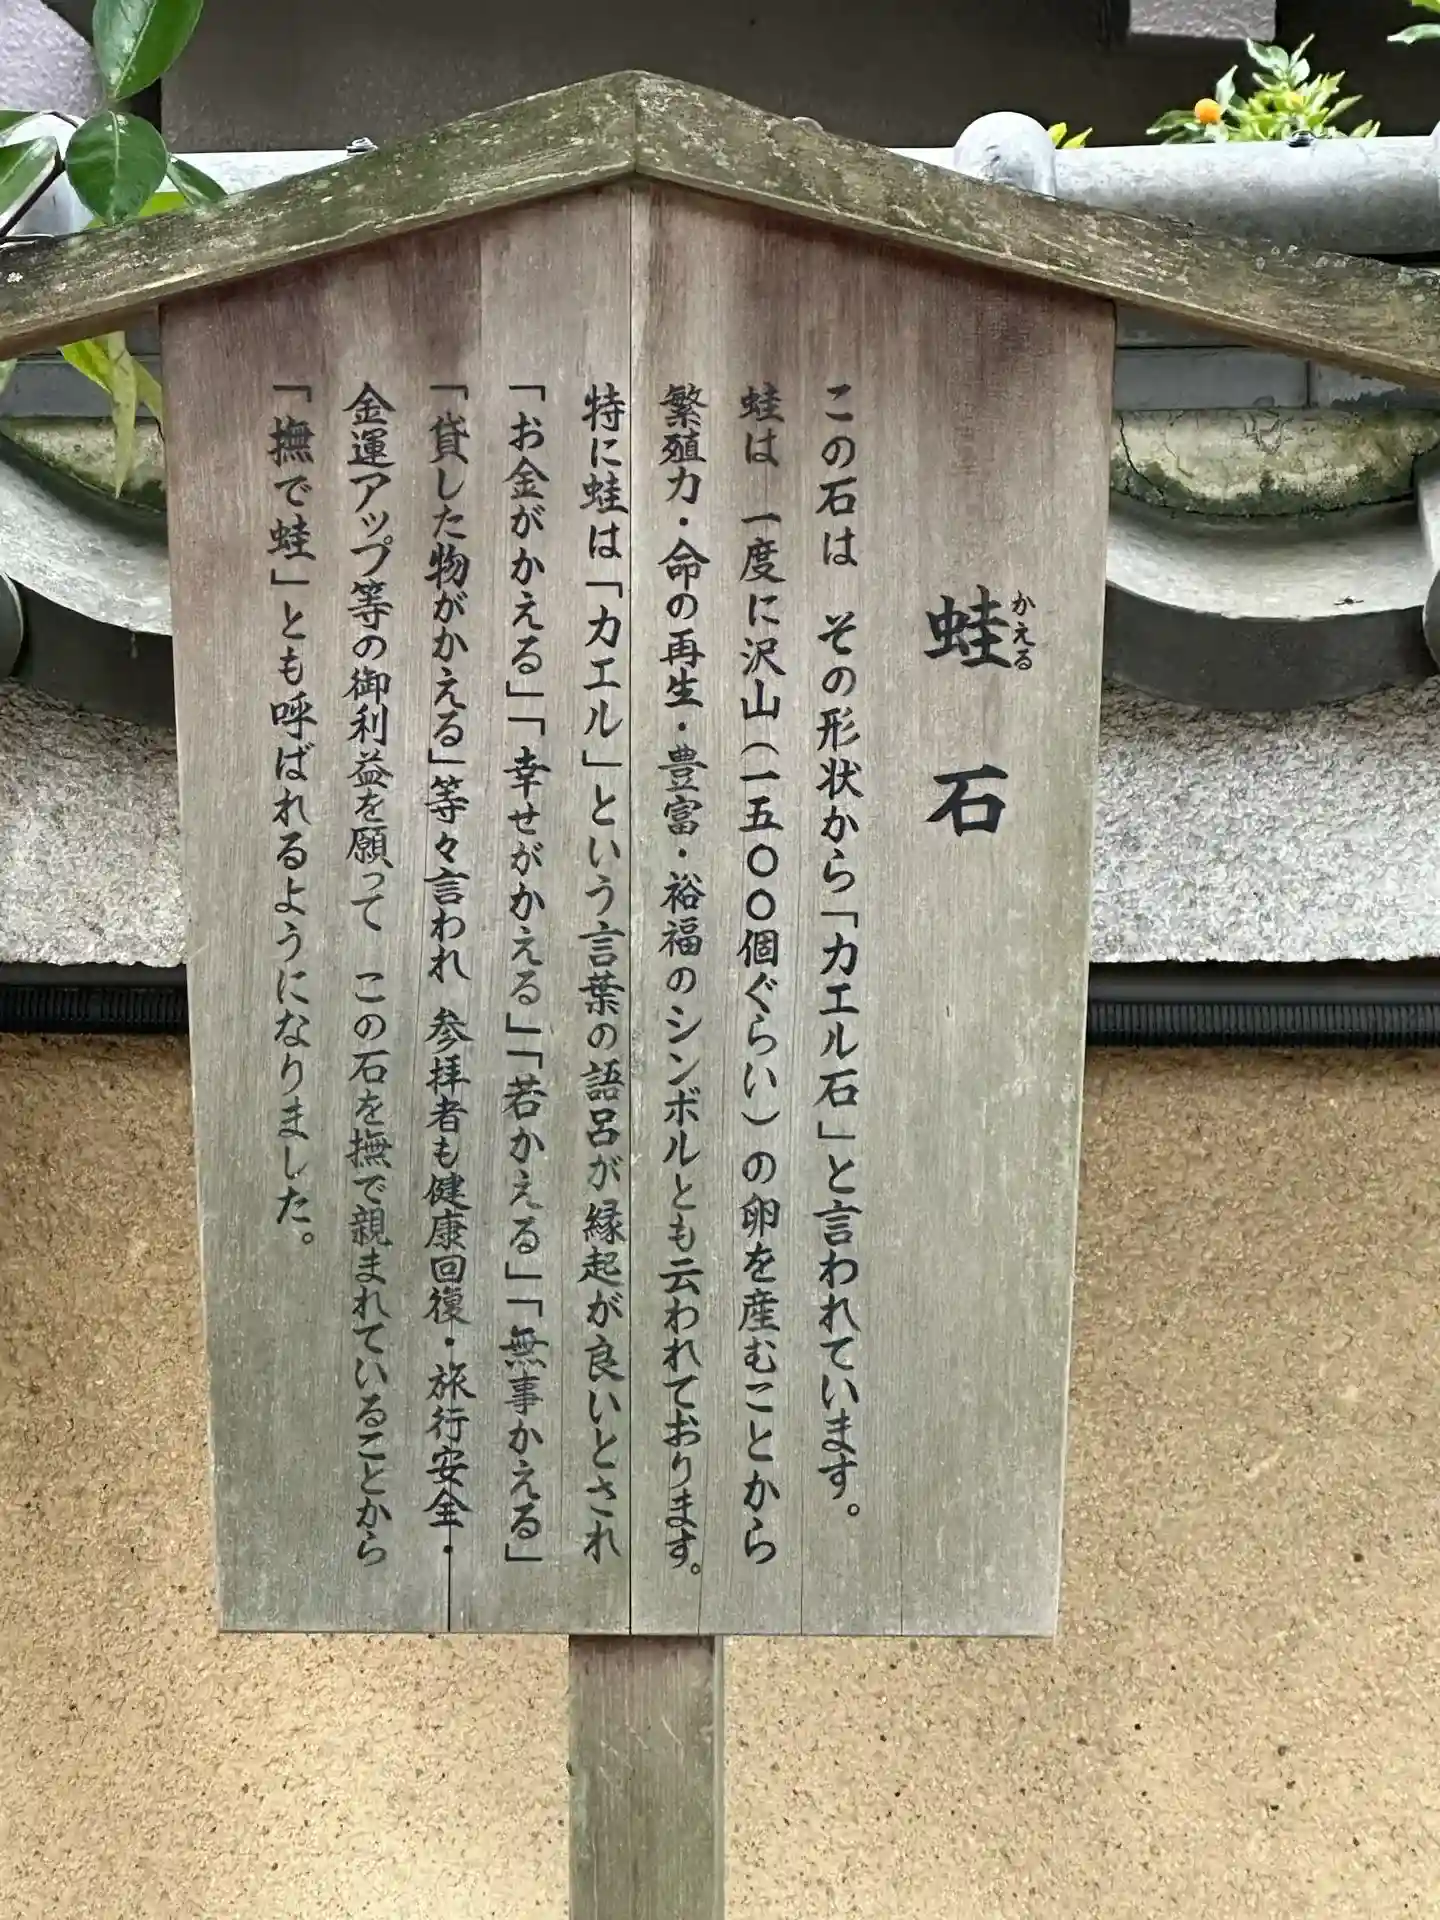 蛙石
かえる
この石は　その形状から「カエル石」と言われています。
蛙は　一度に沢山(一五〇〇個ぐらい)の卵を産むことから
繁殖力・命の再生・豊富・裕福のシンボルとも云われております。
特に蛙は「カエル」という言葉の語呂が縁起が良いとされ
「お金がかえる」「幸せがかえる」「若かえる」「無事かえる」
「貸した物がかえる」等々言われ　参拝者も健康回復・旅行安全・
金運アップ等の御利益を願って　この石を撫で親まれていることから
「撫で蛙」とも呼ばれるようになりました。